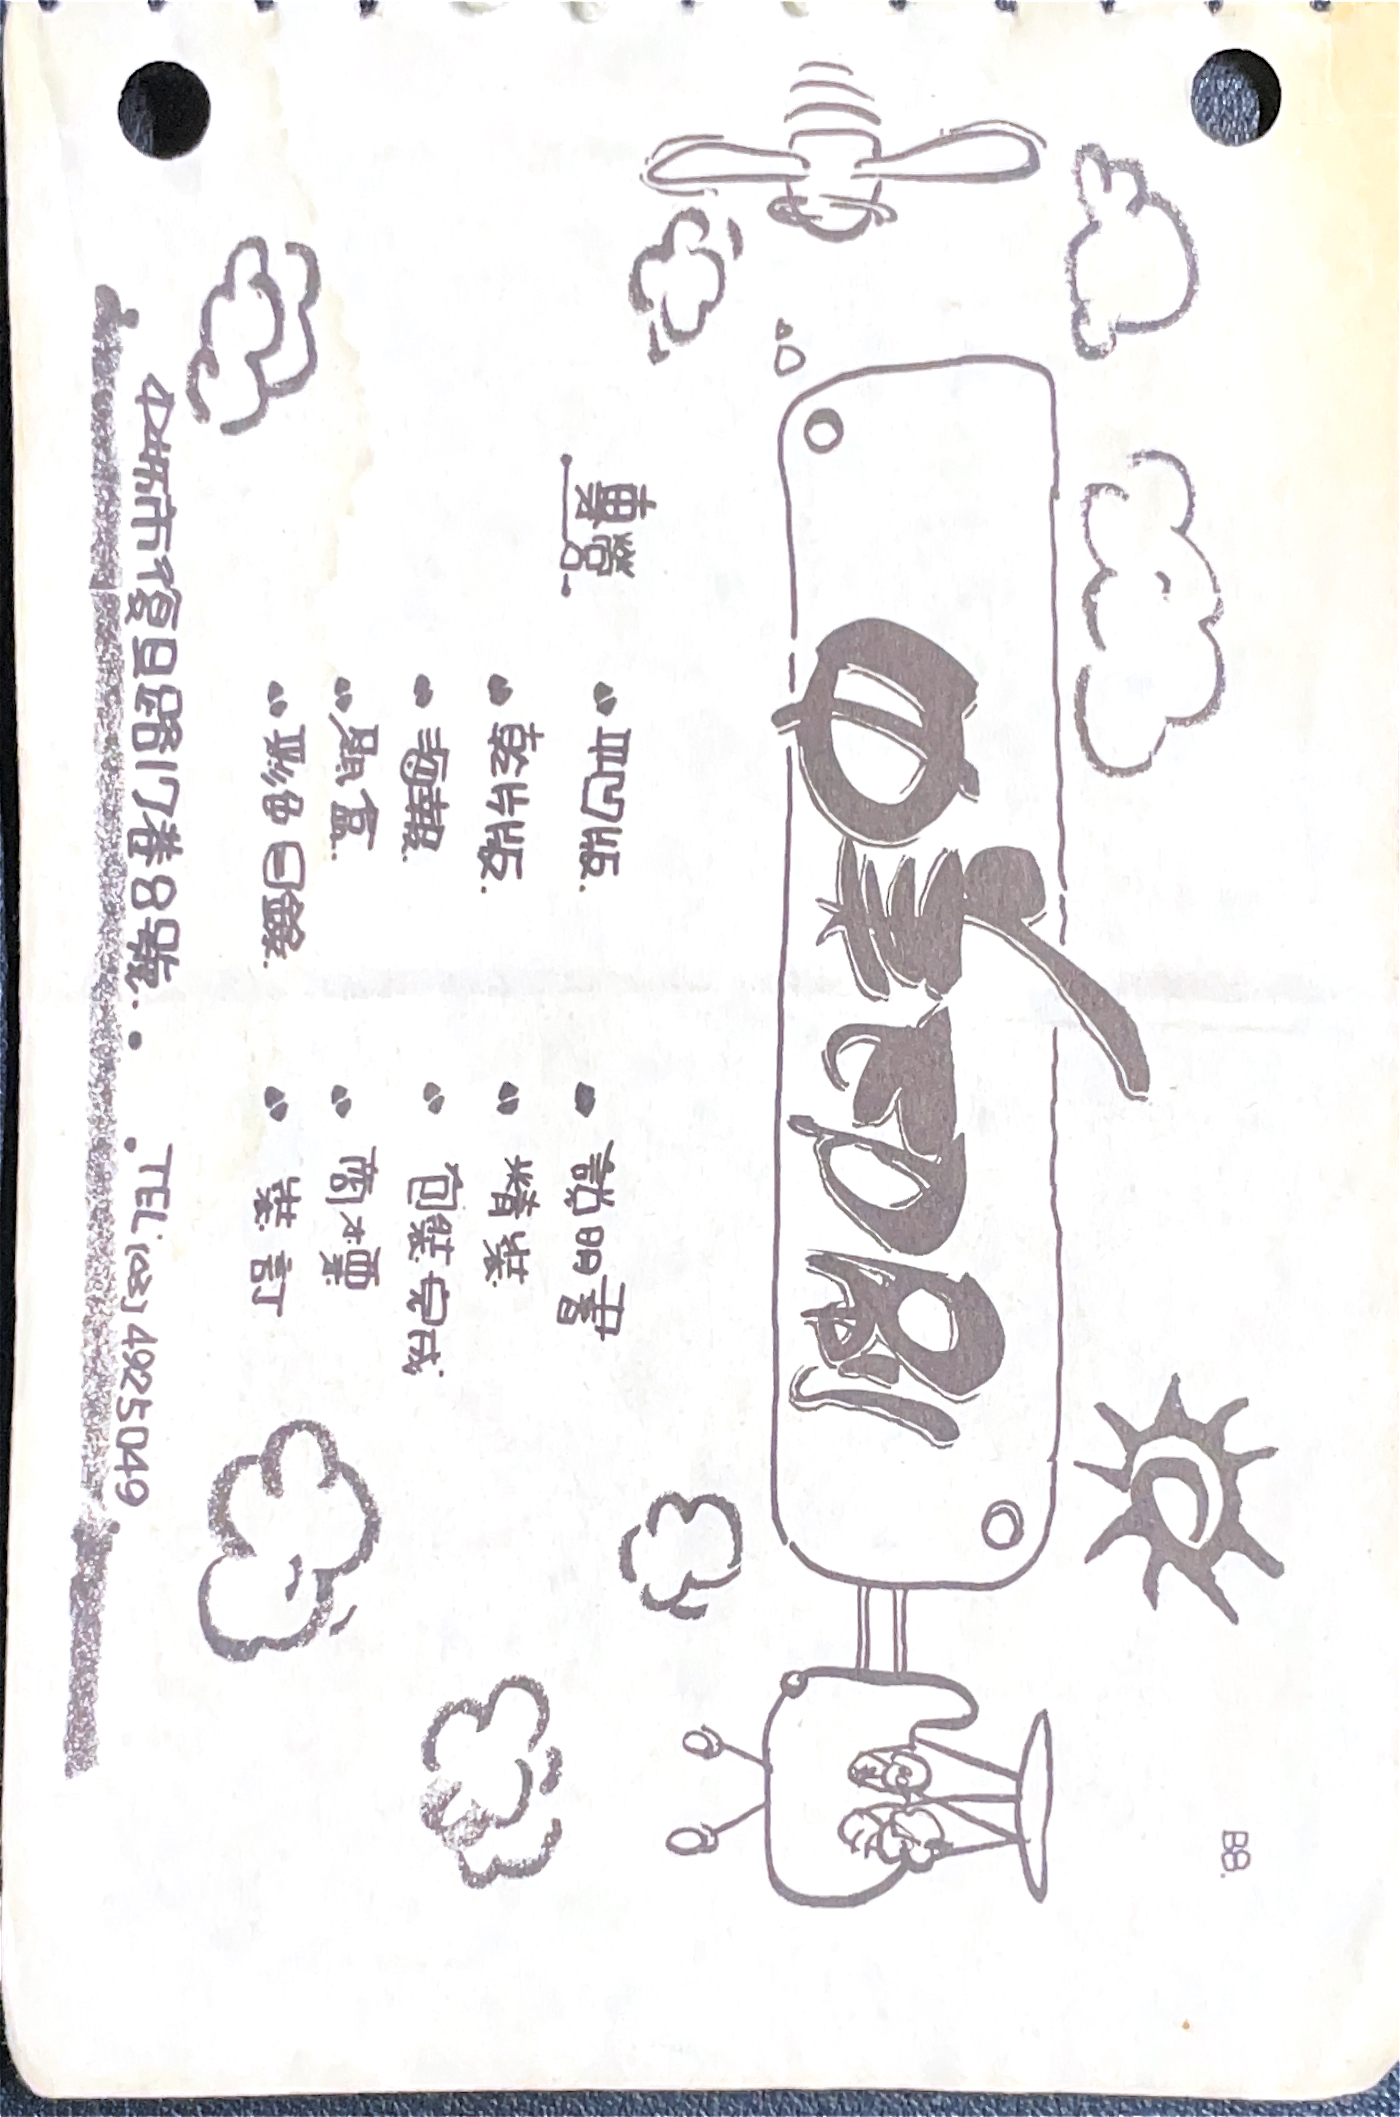 B8.
中美印刷
專營
平凹版.
乾片版.
海報.
盒.
彩色目錄.
説明書
精裝
包裝完成
商標
裝訂
中坜市復旦路17巷8號.
TEL:(03)4925049